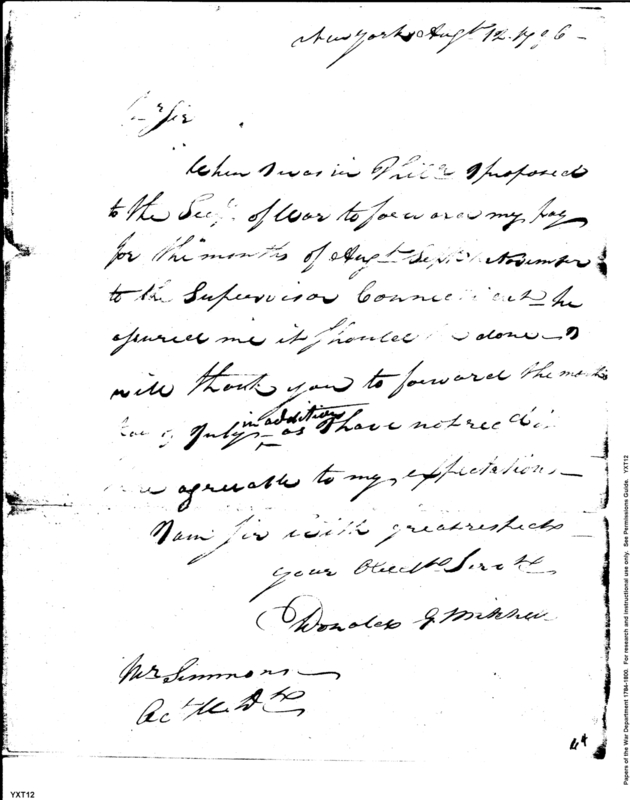 New York Augt. 12. 1796 -
Sir
When I was in Phila I proposed
to the Secy. of War to forward my pay
for the months of Augt. Sept. November
to the Supervisor Connecticut - he
assured me it should be done - I
will thank you to forward the months
pay of July in addition as I have not recd it
here agreeable to my expectations -
I am Sir with great respects
your Obedt. Servt.
Donald G Mitchell
Mr. Simmons
Act. W. D.
YXT12
Papers of the War Department 1784-1800. For research and instructional use only. See Permissions Guide. YXT12